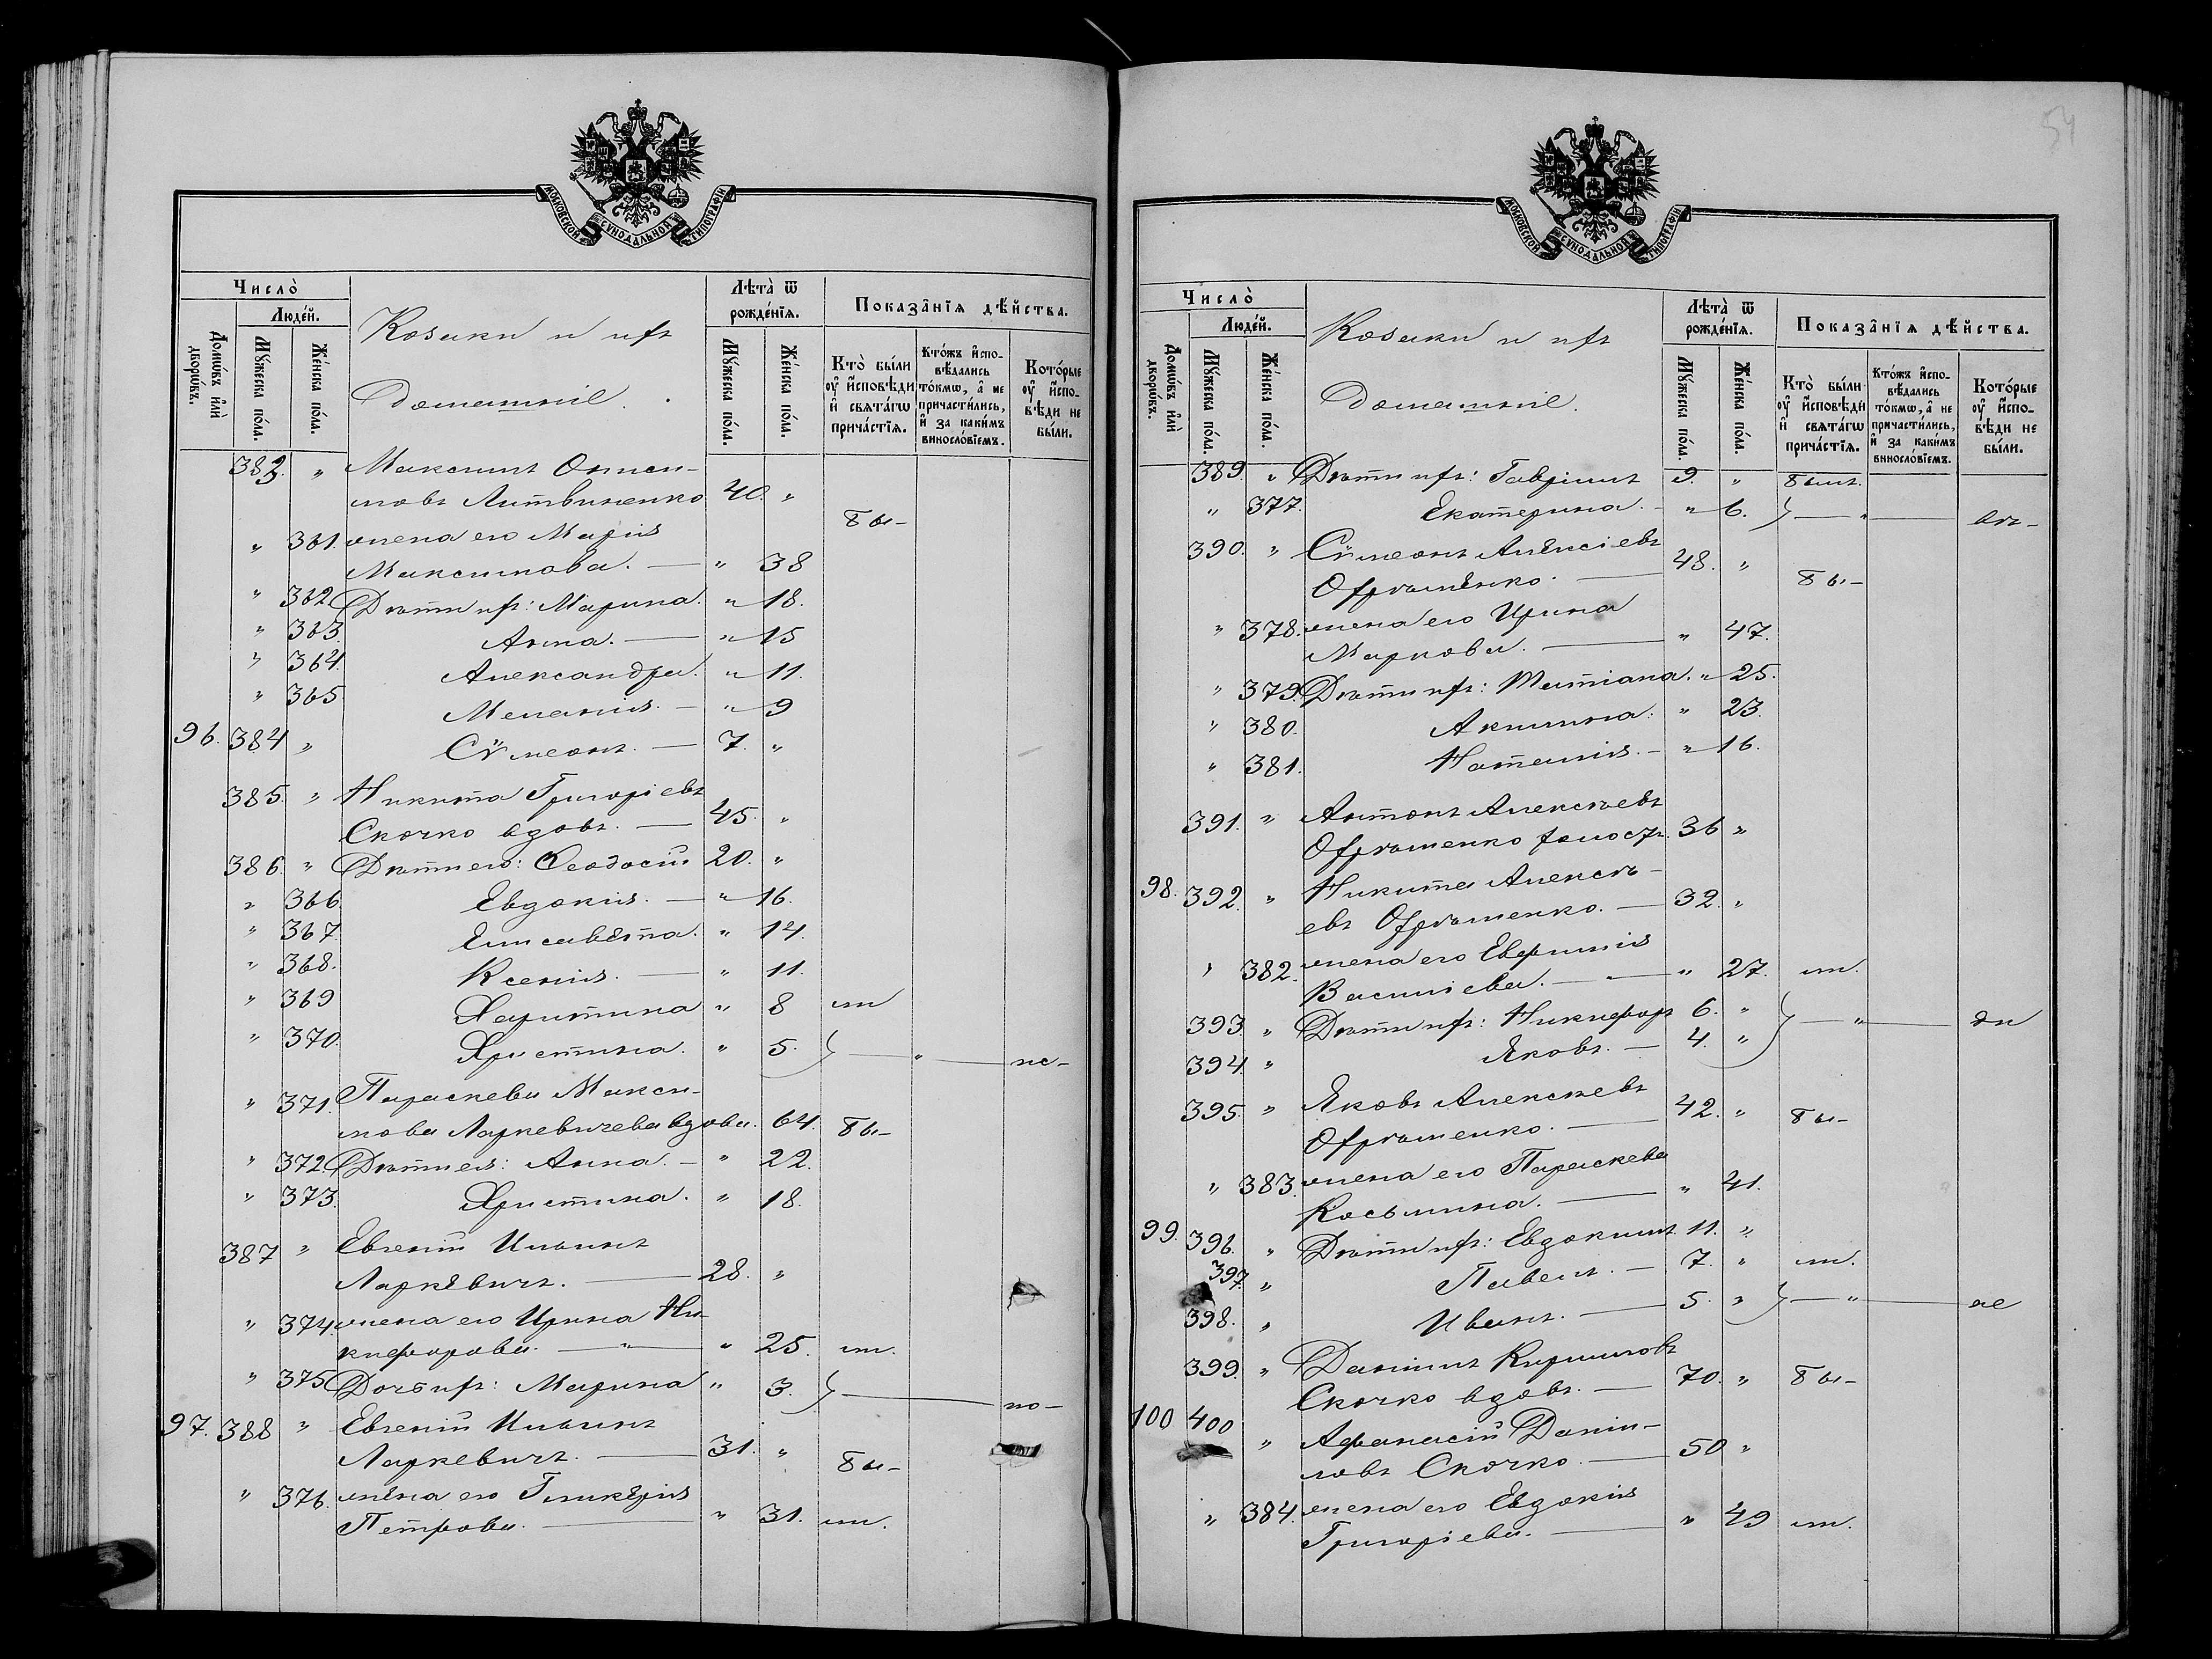 МОСКОВСКОЙ СУНОДАЛЬНОЙ ТИПОГРАФІИ
Число̀
Людей.
Домѡвъ и҆лѝ дворѡвъ.
Мꙋжеска пола.
Женска пола.
Козаки и ихъ
домашніе.
Лѣта̀ ѿ рожденїѧ.
Мꙋжеска пола.
Женска пола.
Показанїѧ дѣйства.
Кто̀ были ᲂу҆ и҆сповѣди и҆ свѧтагѡ причастїѧ.
Ктожъ и҆сповѣдались токмѡ, а҆ не причастились, и҆ за какимъ винословїемъ.
Которые ᲂу҆ и҆сповѣди не были.
383. " Максимъ Ониси-
мовъ Литвиненко 40. "
бы-
" 361. жена его Марія
Максимова. — " 38
" 362 Дѣти ихъ: Марина. " 18.
" 363. Анна. — " 15
" 364. Александра. " 11.
" 365 Меланія. — " 9
96. 384 " Сѵмеонъ. — 7. "
385. " Никита Григоріевъ
Скочко вдовъ. — 45. "
386. " Дѣти его: Ѳеодосій 20. "
" 366 Евдокія. — " 16.
" 367 Елисавета. " 14.
" 368. Ксенія. — " 11.
" 369 Харитина " 8 ли
" 370. Христина. " 5. } — " — не-
" 371. Параскева Макси-
мова Ларкевичева вдова. 64. бы-
" 372. Дѣти ея: Анна. — " 22.
" 373. Христина. " 18.
387 " Евгеній Ильинъ
Ларкевичъ. — 28. "
" 374. жена его Ирина Ни-
кифорова. — " — " 25. ли.
" 375 Дочь ихъ: Марина " 3. } — по-
97. 388 " Евгеній Ильинъ
Ларкевичъ. — 31. "
бы-
" 376. жена его Гликерія
Петрова. — " 31. ли.
54
МОСКОВСКОЙ СУНОДАЛЬНОЙ ТИПОГРАФІИ
Число̀
Людей.
Домѡвъ и҆лѝ дворѡвъ.
Мꙋжеска пола.
Женска пола.
Козаки и ихъ
домашніе.
Лѣта̀ ѿ рожденїѧ.
Мꙋжеска пола.
Женска пола.
Показанїѧ дѣйства.
Кто̀ были ᲂу҆ и҆сповѣди и҆ свѧтагѡ причастїѧ.
Ктожъ и҆сповѣдались токмѡ, а҆ не причастились, и҆ за какимъ винословїемъ.
Которые ᲂу҆ и҆сповѣди не были.
389. " Дѣти ихъ: Гавріилъ 9. " былъ.
" 377. Екатерина. — " 6. } — " —
390. " Сѵмеонъ Алексіевъ
Охрѣменко. — 48. " бы-
" 378. жена его Ирина
Маркова. — " 47.
" 379. Дѣти ихъ: Татіана. " 25.
" 380. Акилина. " 23.
" 381. Наталія. — " 16.
391. " Антонъ Алексѣевъ
Охрѣменко холостъ. 36 "
98. 392. " Никита Алексѣ-
евъ Охрѣменко. — 32. "
" 382. жена его Евфимія
Васильева. — " 27. ли.
393. " Дѣти ихъ: Никифоръ 6. " } — " —
394. " Яковъ. — 4. "
395. " Яковъ Алексѣевъ
Охрѣменко. — 42. " бы-
" 383. жена его Параскева
Косьмина. — " 41.
99. 396. " Дѣти ихъ: Евдокимъ. 11. "
397. " Павелъ. — 7. " ли.
398. " Иванъ. — 5. " } — " —
399. " Даніилъ Кириловъ
Скочко вдовъ. — 70. " бы-
100 400 " Афанасій Даніи-
ловъ Скочко. — 50 "
" 384. жена его Евдокія
Григоріева. — " 49 ли.